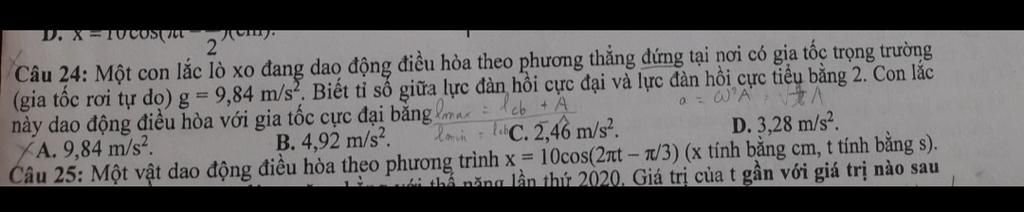 D. x = 10cos(πt − 2)(cm).
Câu 24: Một con lắc lò xo đang dao động điều hòa theo phương thẳng đứng tại nơi có gia tốc trọng trường
(gia tốc rơi tự do) g = 9,84 m/s². Biết tỉ số giữa lực đàn hồi cực đại và lực đàn hồi cực tiểu bằng 2. Con lắc
này dao động điều hòa với gia tốc cực đại bằng lmax = lcb + A a = ω²A
A. 9,84 m/s². B. 4,92 m/s². lmin = C. 2,46 m/s². D. 3,28 m/s².
Câu 25: Một vật dao động điều hòa theo phương trình x = 10cos(2πt − π/3) (x tính bằng cm, t tính bằng s).
thế năng lần thứ 2020. Giá trị của t gần với giá trị nào sau